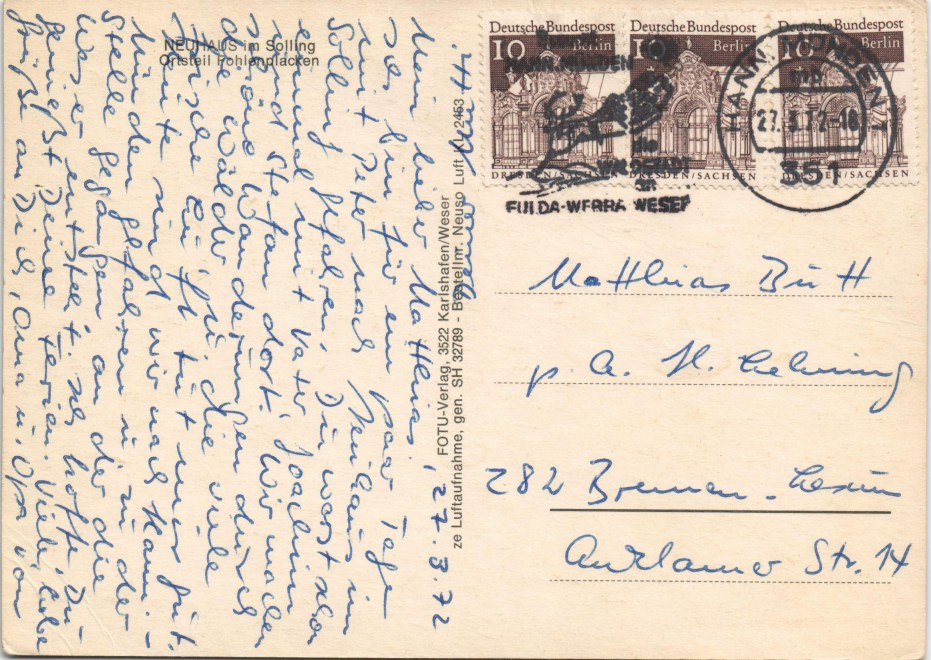 NEUHAUS im Solling
Ortsteil Fohlenplacken
FOTU-Verlag, 3522 Karlshafen/Weser
ze Luftaufnahme, gen. SH 32789 - Bestellnr. Neuso Luft KN 2463
Deutsche Bundespost
10 Berlin
DRESDEN/SACHSEN
Deutsche Bundespost
10 Berlin
DRESDEN/SACHSEN
Deutsche Bundespost
10 Berlin
DRESDEN/SACHSEN
HANN. MÜNDEN
WALDSTADT
an
FULDA-WERRA WESER
HANN. MÜNDEN 1
27.3.72-18
351
27.3.72
Mein lieber Matthias!
Ich bin für ein paar Tage
mit Peter nach Neuhaus im
Solling gefahren. Du warst schon
einmal mit Vater, Joachim
und Stefan dort. Wir machen
schöne Wanderungen durch
die Wälder. Die viele
frische Luft tut uns gut.
Heute sind wir nach Hann.-
Münden gefahren u. zu der
Stelle gegangen, an der die
Weser entsteht. Ich hoffe, Du
genießt Deine Ferien. Viele, liebe
Grüße an Dich, Oma u. Opa von
Matthias Bütt
p. A. H.
282 Bremen-Lesum
Anklamer Str. 14